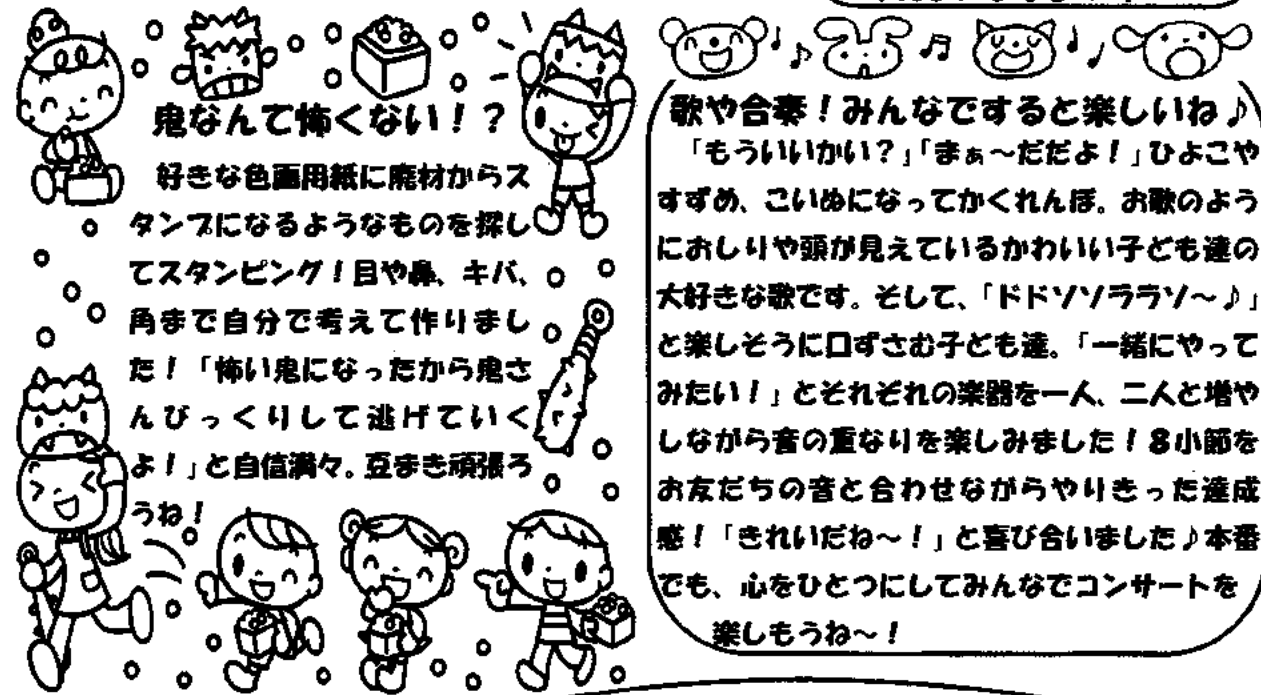 鬼なんて怖くない！？
好きな色画用紙に廃材からス
タンプになるようなものを探し
てスタンピング！目や鼻、キバ、
角まで自分で考えて作りまし
た！「怖い鬼になったから鬼さ
んびっくりして逃げていく
よ！」と自信満々。豆まき頑張ろ
うね！
歌や合奏！みんなですると楽しいね♪
「もういいかい？」「まぁ～だだよ！」ひよこや
すずめ、こいぬになってかくれんぼ。お歌のよう
におしりや頭が見えているかわいい子ども達の
大好きな歌です。そして、「ドドソソララソ～♪」
と楽しそうに口ずさむ子ども達。「一緒にやって
みたい！」とそれぞれの楽器を一人、二人と増や
しながら音の重なりを楽しみました！８小節を
お友だちの音と合わせながらやりきった達成
感！「きれいだね～！」と喜び合いました♪本番
でも、心をひとつにしてみんなでコンサートを
楽しもうね～！